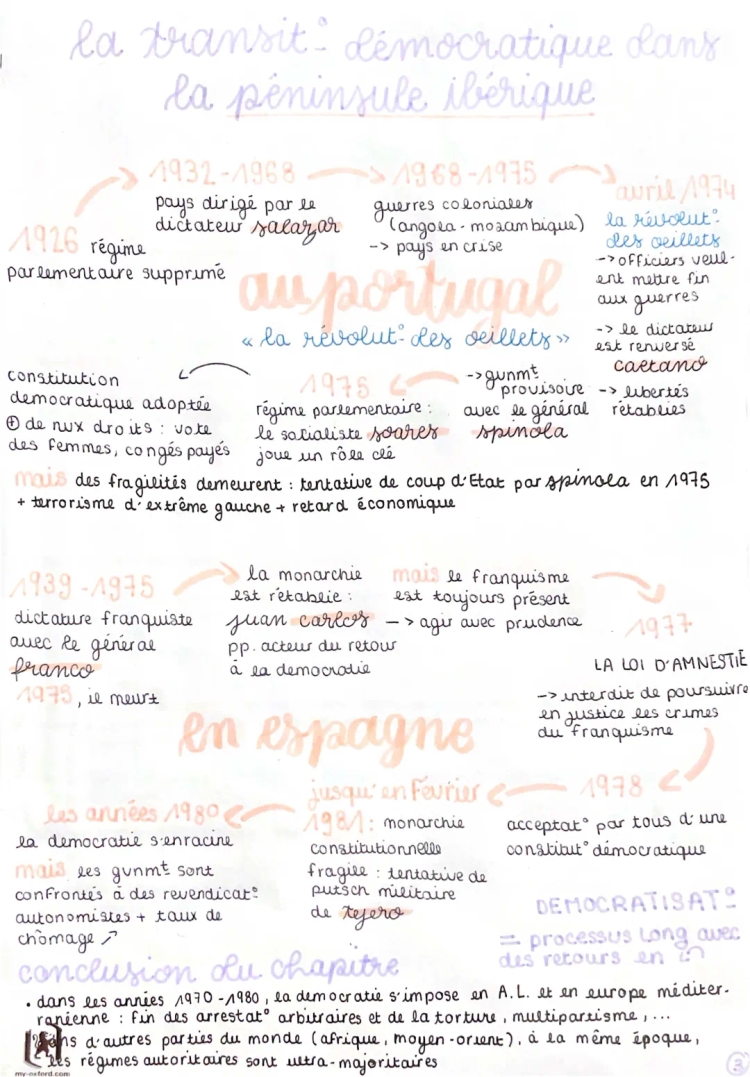 la transit° démocratique dans
la péninsule ibérique
1926 régime
parlementaire supprimé
1932-1968
pays dirigé par le
dictateur salazar
1968-1975
guerres coloniales
(angola - mozambique)
-> pays en crise
avril 1974
la révolut°
des oeillets
-> officiers veul-
ent mettre fin
aux guerres
-> le dictateur
est renversé
caetano
-> libertés
rétablies
au portugal
« la révolut° des oeillets »
-> gvnmt
provisoire
avec le général
spinola
1976
régime parlementaire :
le socialiste soares
joue un rôle clé
constitution
democratique adoptée
⊕ de nvx droits : vote
des femmes, congés payés
mais des fragilités demeurent : tentative de coup d'Etat par spinola en 1975
+ terrorisme d'extrême gauche + retard économique
1939-1975
dictature franquiste
avec le général
franco
1975, il meurt
la monarchie
est rétablie :
juan carlos
pp. acteur du retour
à la democratie
mais le franquisme
est toujours présent
-> agir avec prudence
1977
LA LOI D'AMNESTIE
-> interdit de poursuivre
en justice les crimes
du franquisme
en espagne
1978
acceptat° par tous d'une
constitut° démocratique
jusqu'en Février
1981 : monarchie
constitutionnelle
fragile : tentative de
putsch militaire
de tejero
les années 1980
la democratie s'enracine
mais les gvnmt sont
confrontés à des revendicat°
autonomistes + taux de
chômage ↗
DEMOCRATISAT°
= processus long avec
des retours en
conclusion du chapitre
• dans les années 1970-1980, la democratie s'impose en A.L. et en europe méditer-
ranéenne : fin des arrestat° arbitraires et de la torture, multipartisme, ...
d'autres parties du monde (afrique, moyen-orient), à la même époque,
les régimes autoritaires sont ultra-majoritaires
my-oxford.com
3